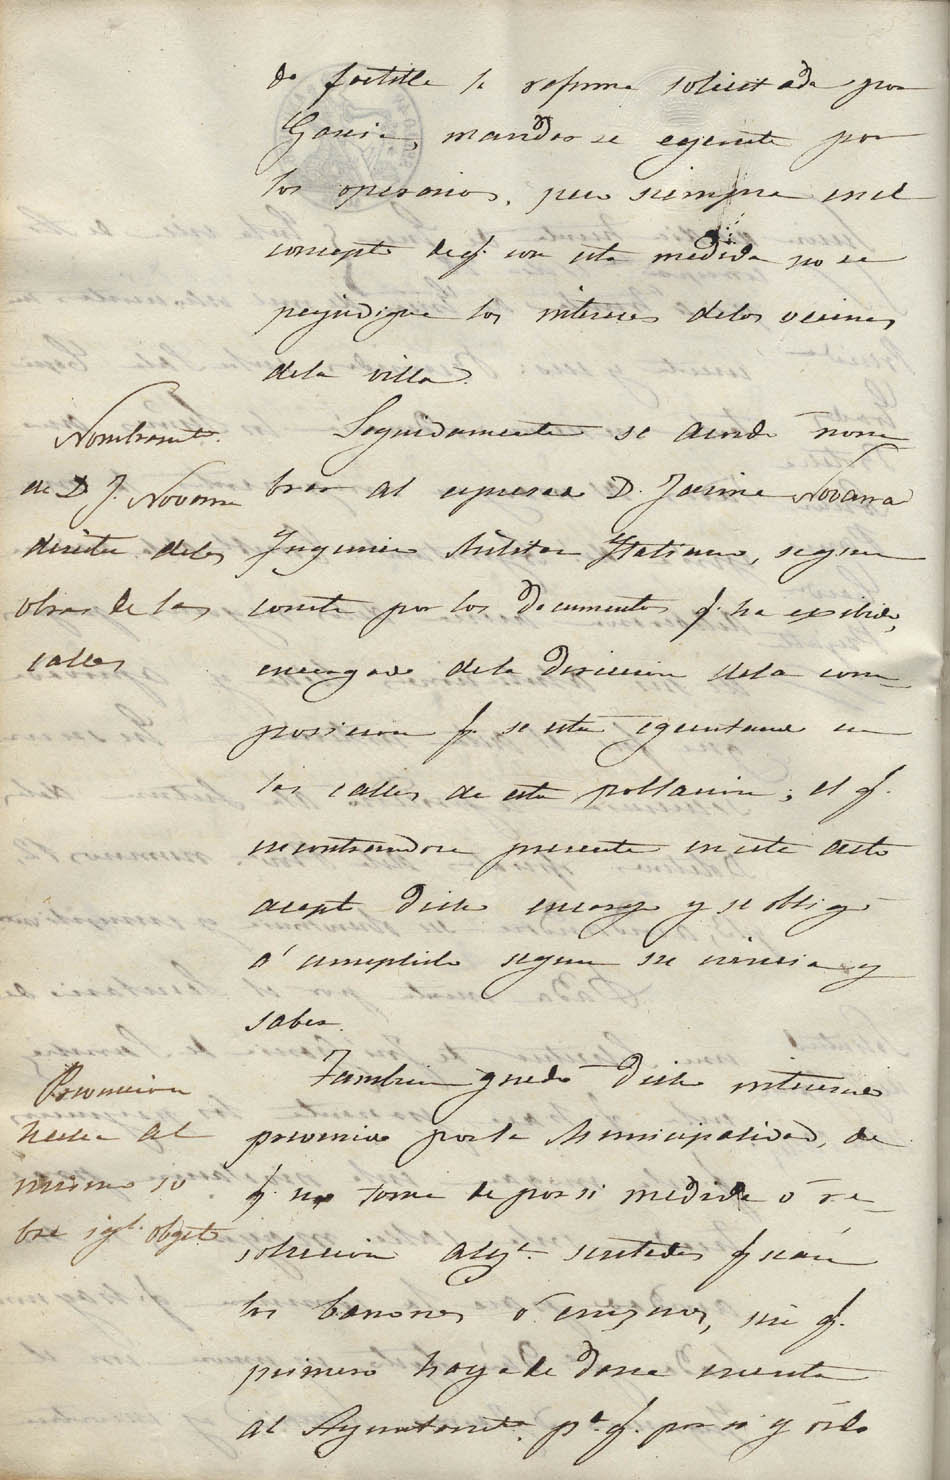 de factible la reforma solicitada por
Garcia, mandar se egecute por
los operarios, pero siempre en el
concepto de q.e con esta medida no se
perjudique los intereses delos vecinos
dela villa.
Nombramt.o
de D. J. Novarra
director delas
obras de las
calles
Seguidamente se acordó nom-
brar al espresado D. Jaime Novarra
Ingeniero Militar Ytaliano, segun
consta por los documentos q.e ha exibido,
encargado dela direccion dela com-
posicion q.e se esta egecutando en
las calles de esta poblacion; el q.e
encontrandose presente en este acto
aceptó dicho encargo y se obligó
á cumplirlo segun su ciencia y
saber.
Prevencion
hecha al
mismo so
bre igl. objeto
Tambien quedó dicho interesado
prevenido por la Municipalidad, de
q.e no tome de por si medida ó re-
solucion alg.a
los barrones ó, sin q.e
primero haya de darse cuenta
al Ayuntamt.o p.a q.e por si y